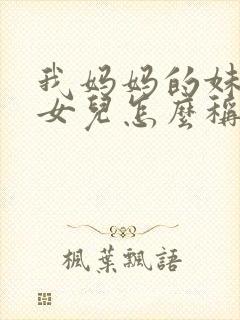 我妈妈的妹
女兒怎麼稱
楓葉飄語